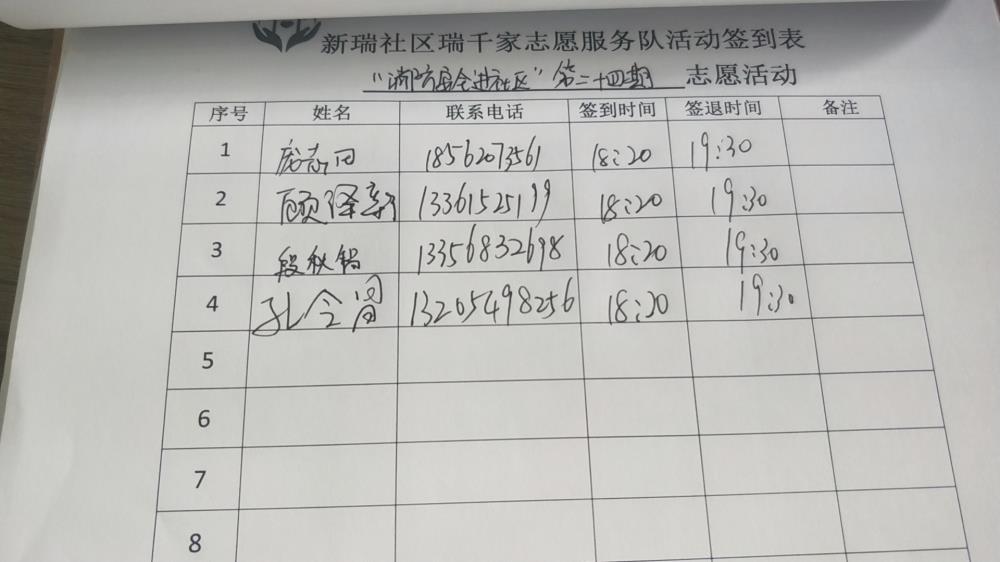 新瑞社区瑞千家志愿服务队活动签到表
"消防安全进社区"第二十四期 志愿活动
序号 姓名 联系电话 签到时间 签退时间 备注
1 庞志 18562073561 18:20 19:30
2 顾泽新 13361525199 18:20 19:30
3 段秋娟 13356832698 18:20 19:30
4 孔令 13205498256 18:20 19:30
5
6
7
8